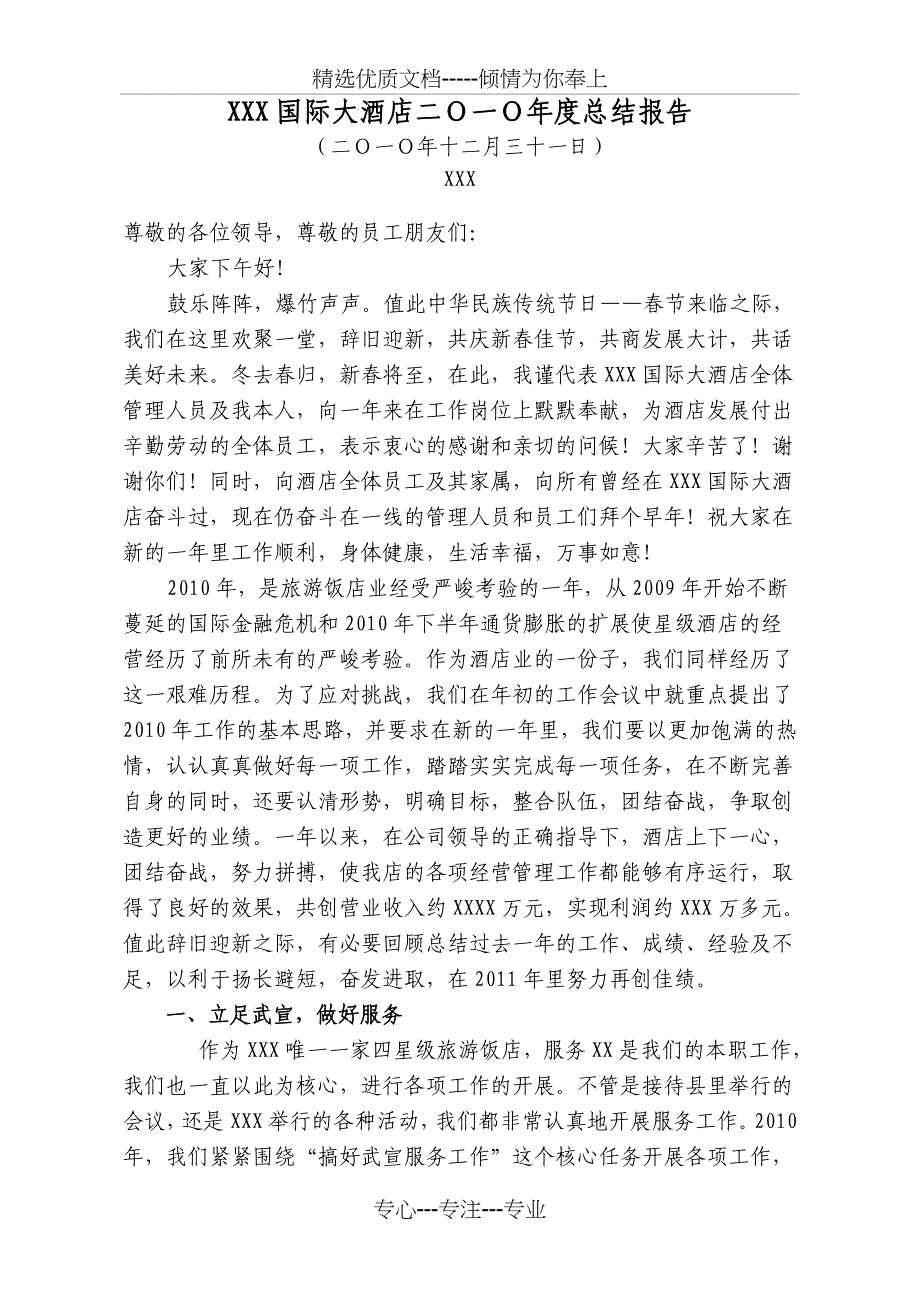 精选优质文档-----倾情为你奉上
XXX 国际大酒店二Ｏ一Ｏ年度总结报告
（二Ｏ一Ｏ年十二月三十一日）
XXX
尊敬的各位领导，尊敬的员工朋友们：
大家下午好！
鼓乐阵阵，爆竹声声。值此中华民族传统节日——春节来临之际，
我们在这里欢聚一堂，辞旧迎新，共庆新春佳节，共商发展大计，共话
美好未来。冬去春归，新春将至，在此，我谨代表 XXX 国际大酒店全体
管理人员及我本人，向一年来在工作岗位上默默奉献，为酒店发展付出
辛勤劳动的全体员工，表示衷心的感谢和亲切的问候！大家辛苦了！谢
谢你们！同时，向酒店全体员工及其家属，向所有曾经在 XXX 国际大酒
店奋斗过，现在仍奋斗在一线的管理人员和员工们拜个早年！祝大家在
新的一年里工作顺利，身体健康，生活幸福，万事如意！
2010 年，是旅游饭店业经受严峻考验的一年，从 2009 年开始不断
蔓延的国际金融危机和 2010 年下半年通货膨胀的扩展使星级酒店的经
营经历了前所未有的严峻考验。作为酒店业的一份子，我们同样经历了
这一艰难历程。为了应对挑战，我们在年初的工作会议中就重点提出了
2010 年工作的基本思路，并要求在新的一年里，我们要以更加饱满的热
情，认认真真做好每一项工作，踏踏实实完成每一项任务，在不断完善
自身的同时，还要认清形势，明确目标，整合队伍，团结奋战，争取创
造更好的业绩。一年以来，在公司领导的正确指导下，酒店上下一心，
团结奋战，努力拼搏，使我店的各项经营管理工作都能够有序运行，取
得了良好的效果，共创营业收入约 XXXX 万元，实现利润约 XXX 万多元。
值此辞旧迎新之际，有必要回顾总结过去一年的工作、成绩、经验及不
足，以利于扬长避短，奋发进取，在 2011 年里努力再创佳绩。
一、立足武宣，做好服务
作为 XXX 唯一一家四星级旅游饭店，服务 XX 是我们的本职工作，
我们也一直以此为核心，进行各项工作的开展。不管是接待县里举行的
会议，还是 XXX 举行的各种活动，我们都非常认真地开展服务工作。2010
年，我们紧紧围绕“搞好武宣服务工作”这个核心任务开展各项工作，
专心---专注---专业